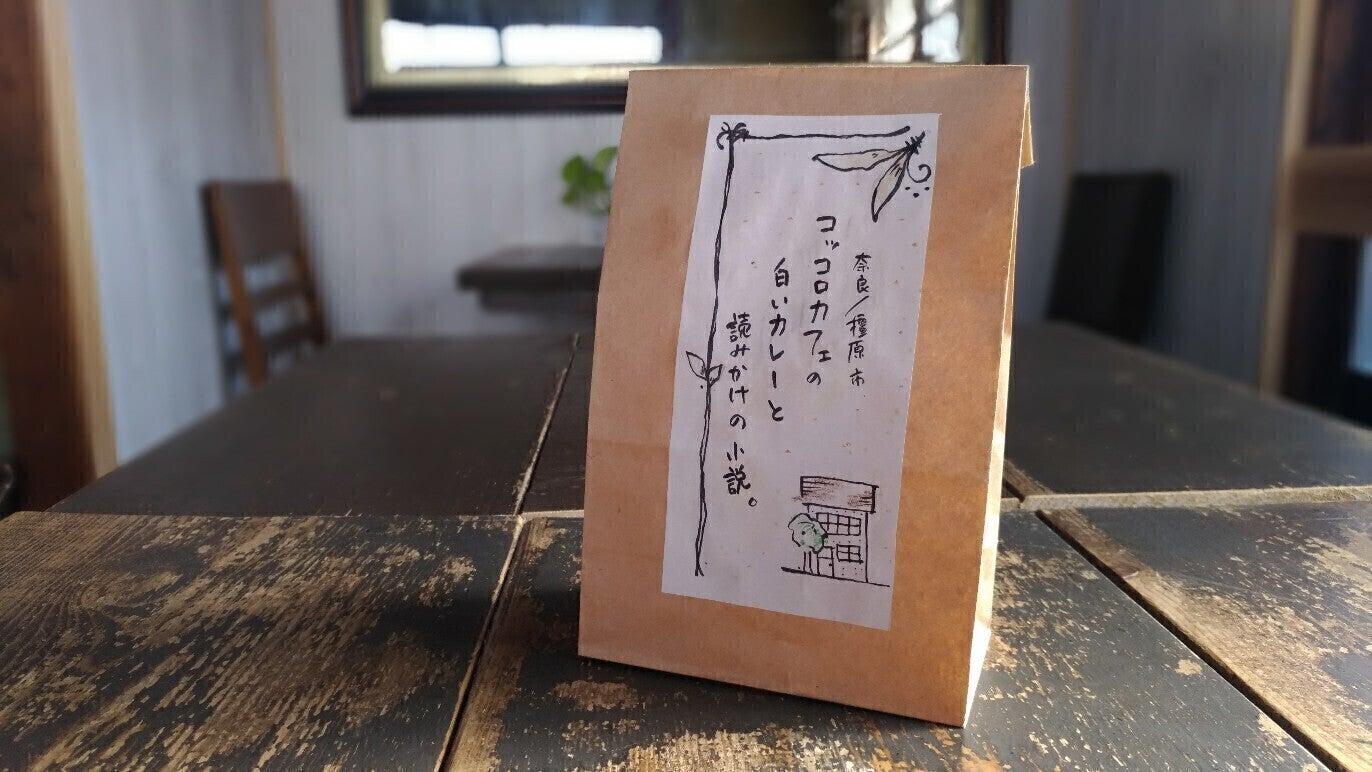 奈良/橿原市
コッコロカフェの
白いカレーと
読みかけの小説。